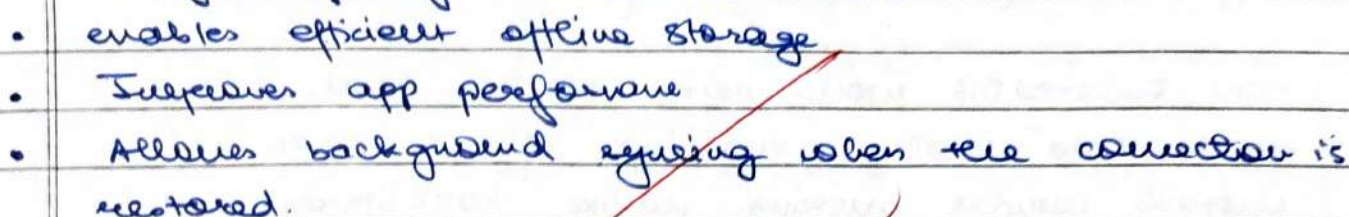 • enables efficient offline storage
• Improves app performane
• Allows background syncing when the connection is
restored.